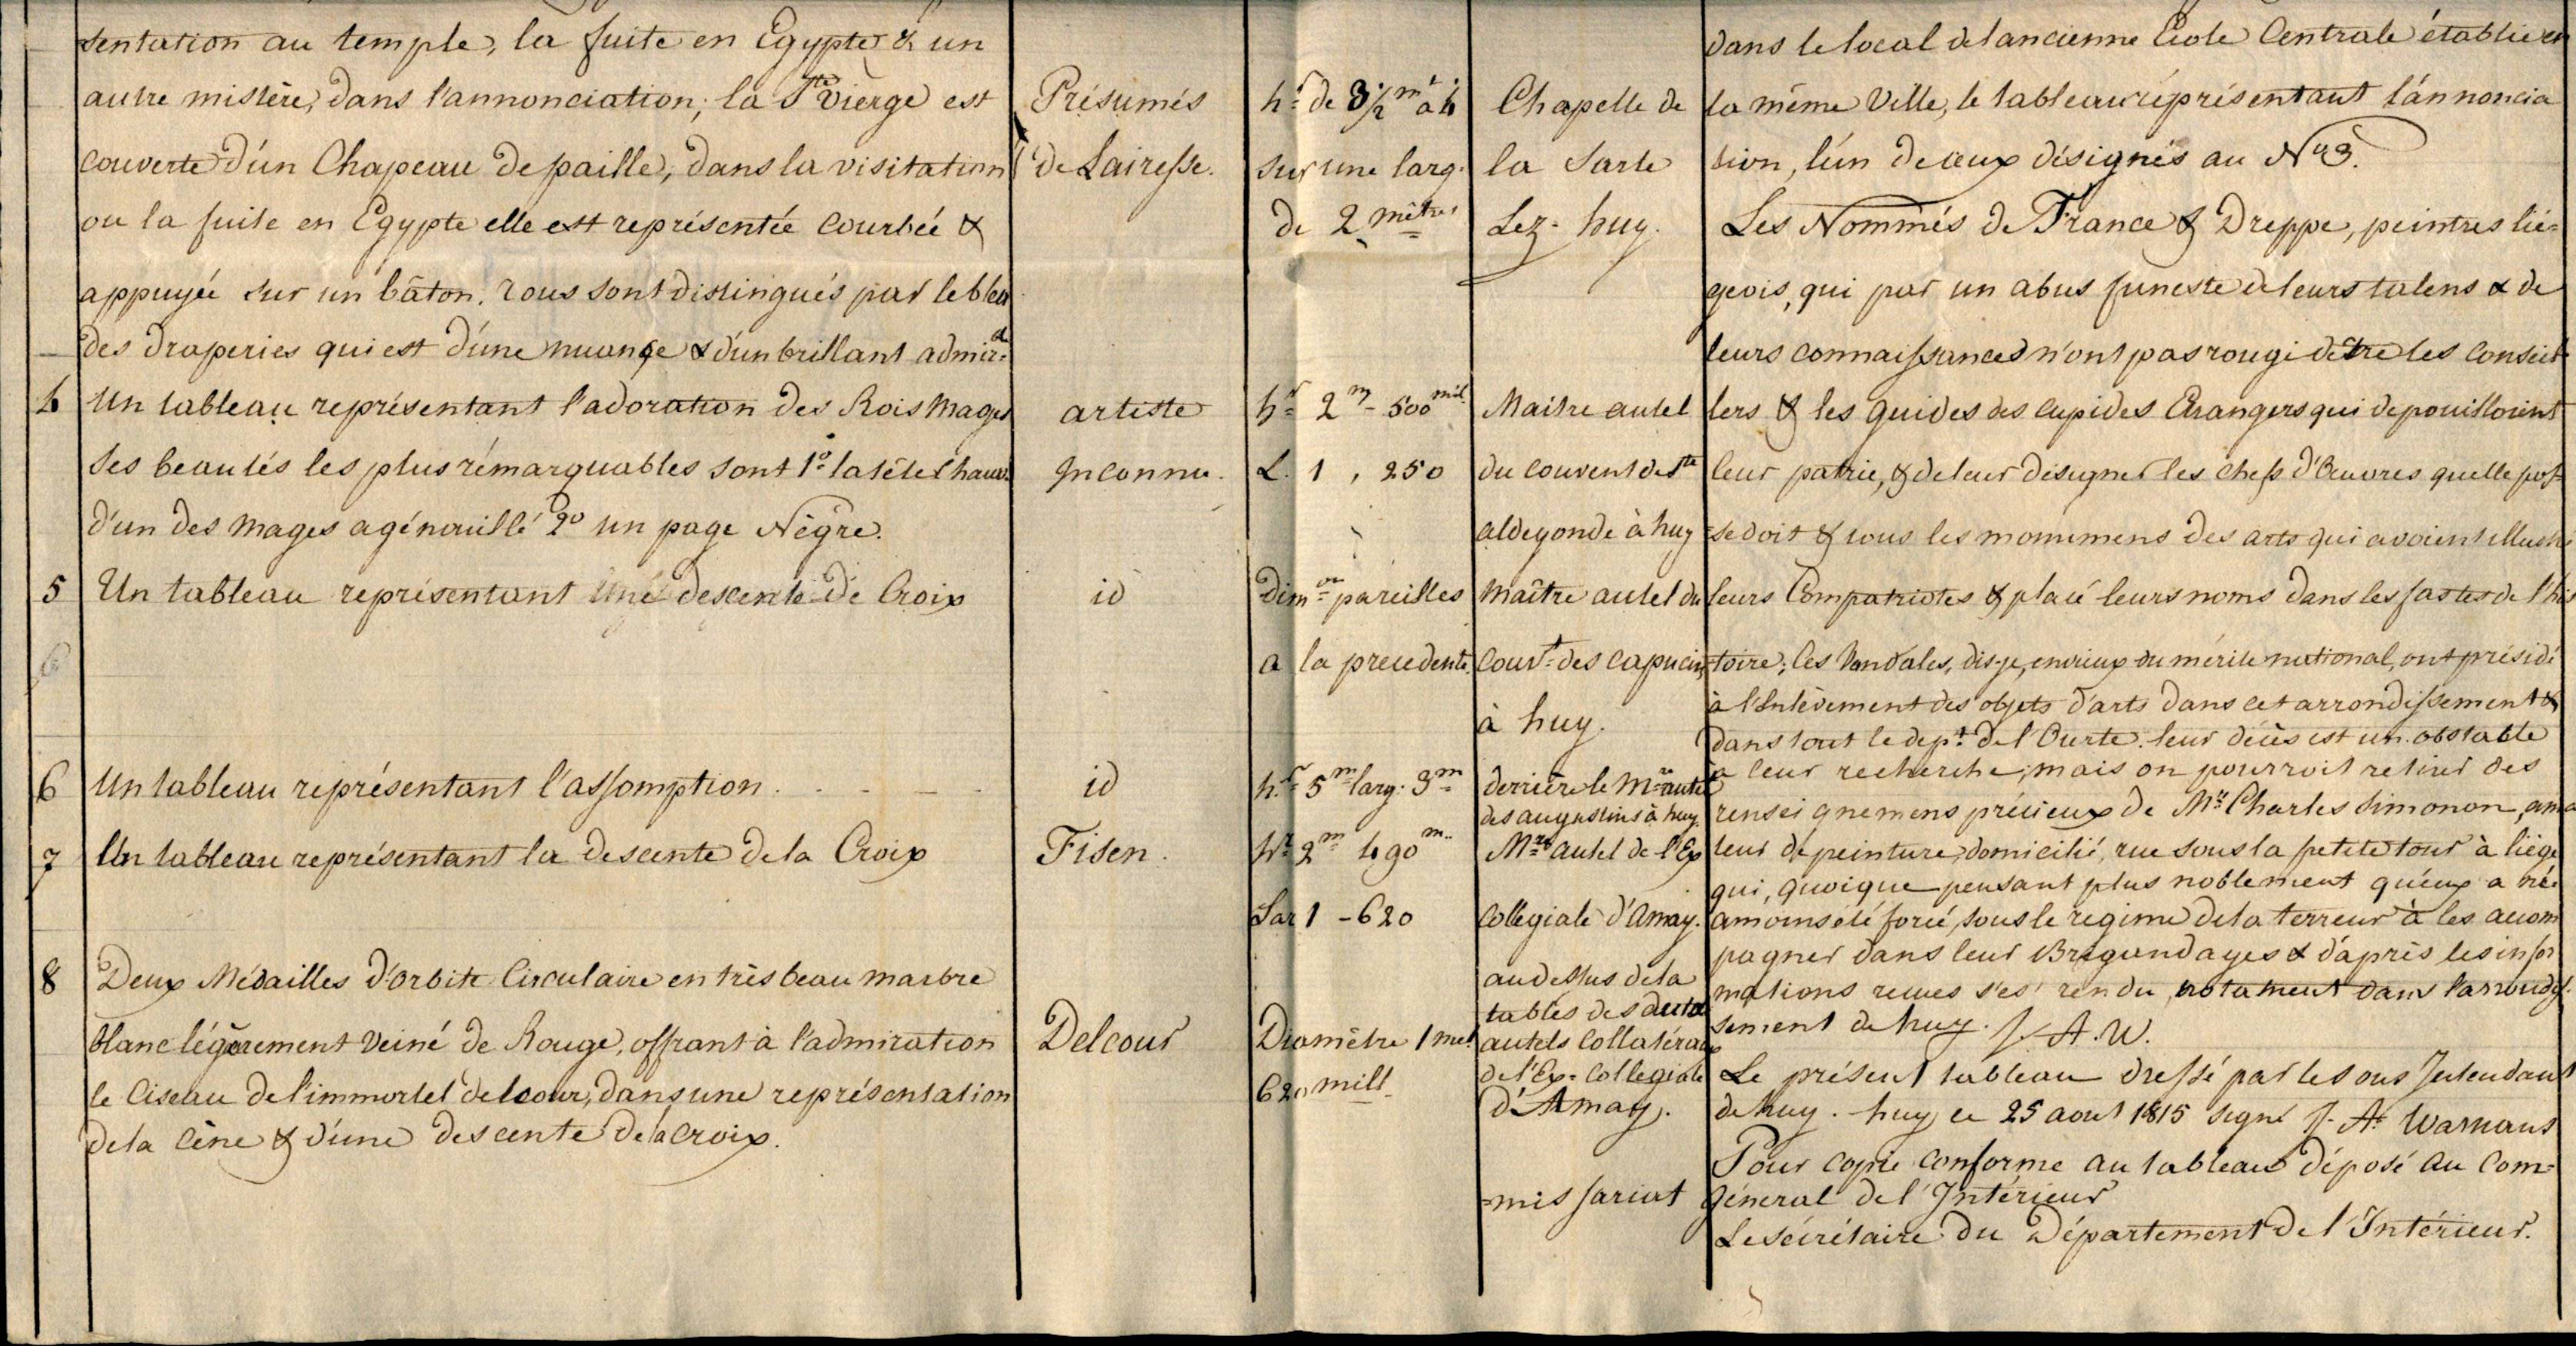 sentation au temple, la fuite en Egypte & un
autre mistère, dans l'annonciation, la Ste vierge est
couverte d'un Chapeau de paille, dans la visitation
ou la fuite en Egypte elle est représentée Courbée &
appuyée sur un bâton. tous sont distingués par le bleu
des draperies qui est d'une nuance & d'un brillant admir:
Présumés
de Lairesse.
hr de 3 1/2 m à 4
sur une larg.
de 2 mètres
Chapelle de
la Sarte
Lez-huy.
4 Un tableau représentant l'adoration des Rois Mages
Ses beautés les plus rémarquables sont 1º la tête chauve
d'un des Mages agénouillé 2º un page Nègre.
artiste
Inconnu.
hr 2 m - 500 mil.
L. 1, 250
Maitre autel
du couvent de Ste
aldegonde à huy
5 Un tableau représentant Une descente de Croix
id
Dimon pareilles
a la precedente
Maître autel du
couvt des capucins
à huy.
6 Un tableau représentant l'assomption . . - -
id
hr 5 m larg. 3 m
derrière le Mre autel
des augustins à huy.
7 Un tableau représentant la descente de la Croix
Fisen.
hr 2 m 490 m
Lar 1 - 620
Mre autel de l'Ex
Collégiale d'Amay.
8 Deux Médailles d'orbite Circulaire en très beau marbre
blanc légèrement veiné de Rouge, offrant à l'admiration
le Ciseau de l'immortel delcour, dans une représentation
de la Cène & d'une descente de la croix.
Delcour
Diamètre 1 met.
620 mill.
au dessus de la
tables des
autels Collatéraux
de l'Ex-Collegiale
d'Amay.
dans le local de l'ancienne Ecole Centrale établie en
la même Ville, le tableau réprésentant l'annoncia
tion, l'un de ceux désignés au No 3.
Les Nommés de France & Dreppe, peintres lié-
geois, qui par un abus funeste de leurs talens & de
leurs connaissances n'ont pas rougi d'être les conseil
lers & les guides des cupides Etrangers qui depouilloient
leur patrie, & de leur désigner les chefs d'Œuvres quelle pos
sedoit & tous les monumens des arts qui avoient illustré
leurs Compatriotes & placé leurs noms dans les fastes de l'his
toire; Ces Vandales, dis-je, envieux du mérite national, ont présidé
à l'Enlèvement des objets d'arts dans cet arrondissement &
dans tout le dept de l'Ourte. leur décès est un obstable
à leur recherche; mais on pourroit retirer des
renseignemens précieux de Mr Charles Simonon, ama
teur de peinture, domicilié, rue sous la petite tour à liége
qui, quoique pensant plus noblement qu'eux a né-
amoins été forcé, sous le regime de la terreur à les accom
pagner dans leur Brigandages & d'après les infor
mations recues s'est rendu notament dans l'arrondis
sement de huy. J. A. W.
Le présent tableau dressé par le sous Intendant
de huy. huy ce 25 aout 1815 signé J. A. Warnant
Pour copie conforme au tableau déposé au Com-
=missariat Général de l'Intérieur
Le Sécrétaire du Département de l'Intérieur.